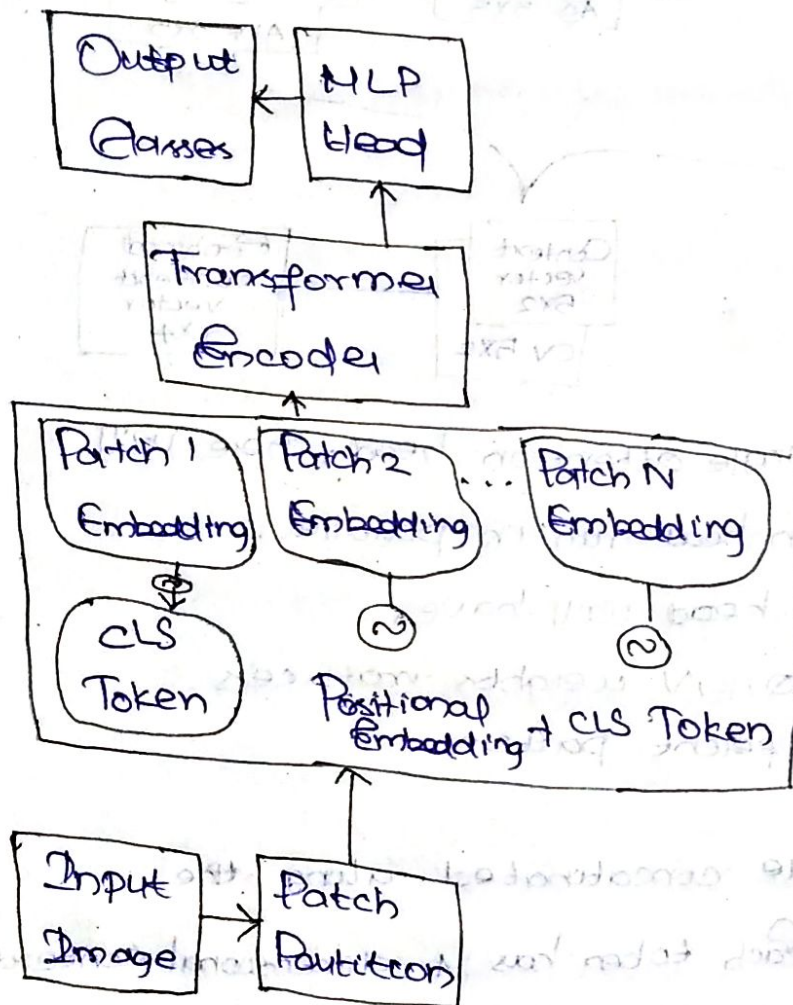 Output
Classes
MLP
Head
Transformer
Encoder
Patch 1
Embedding
Patch 2
Embedding
...
Patch N
Embedding
~
~
~
CLS
Token
Positional
Embedding + CLS Token
Input
Image
Patch
Partition